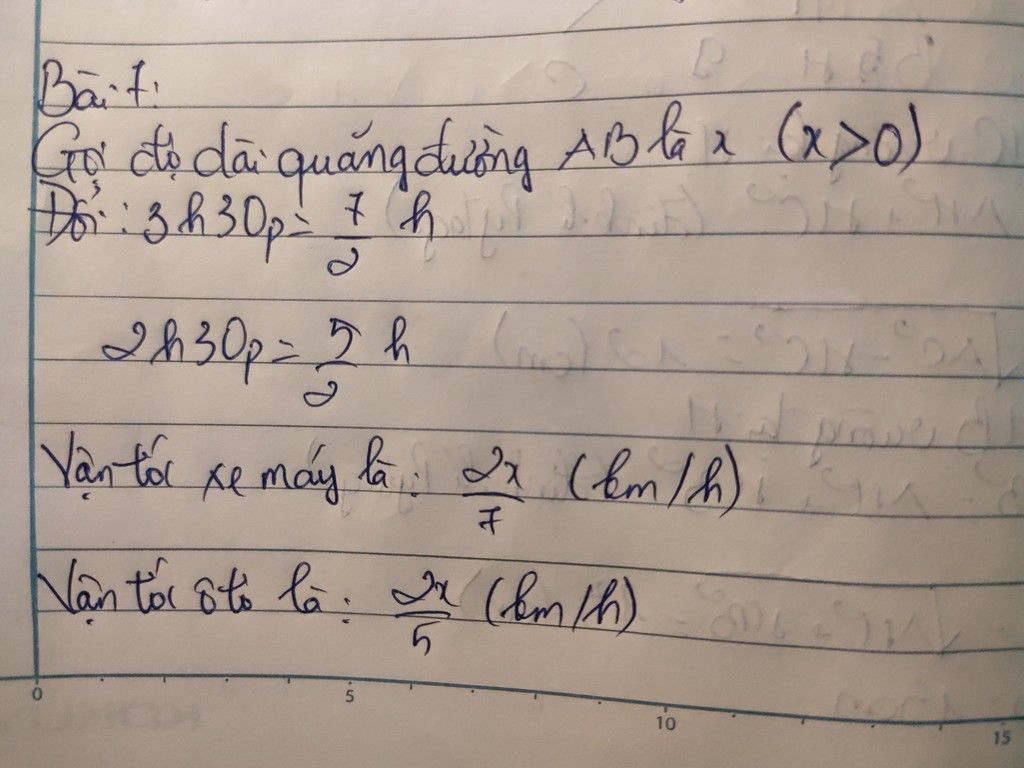 Bài 7:
Gọi độ dài quãng đường AB là x (x>0)
Đổi: 3h30p = 7/2 h
2h30p = 5/2 h
Vận tốc xe máy là: 2x/7 (km/h)
Vận tốc ôtô là: 2x/5 (km/h)
0 5 10 15